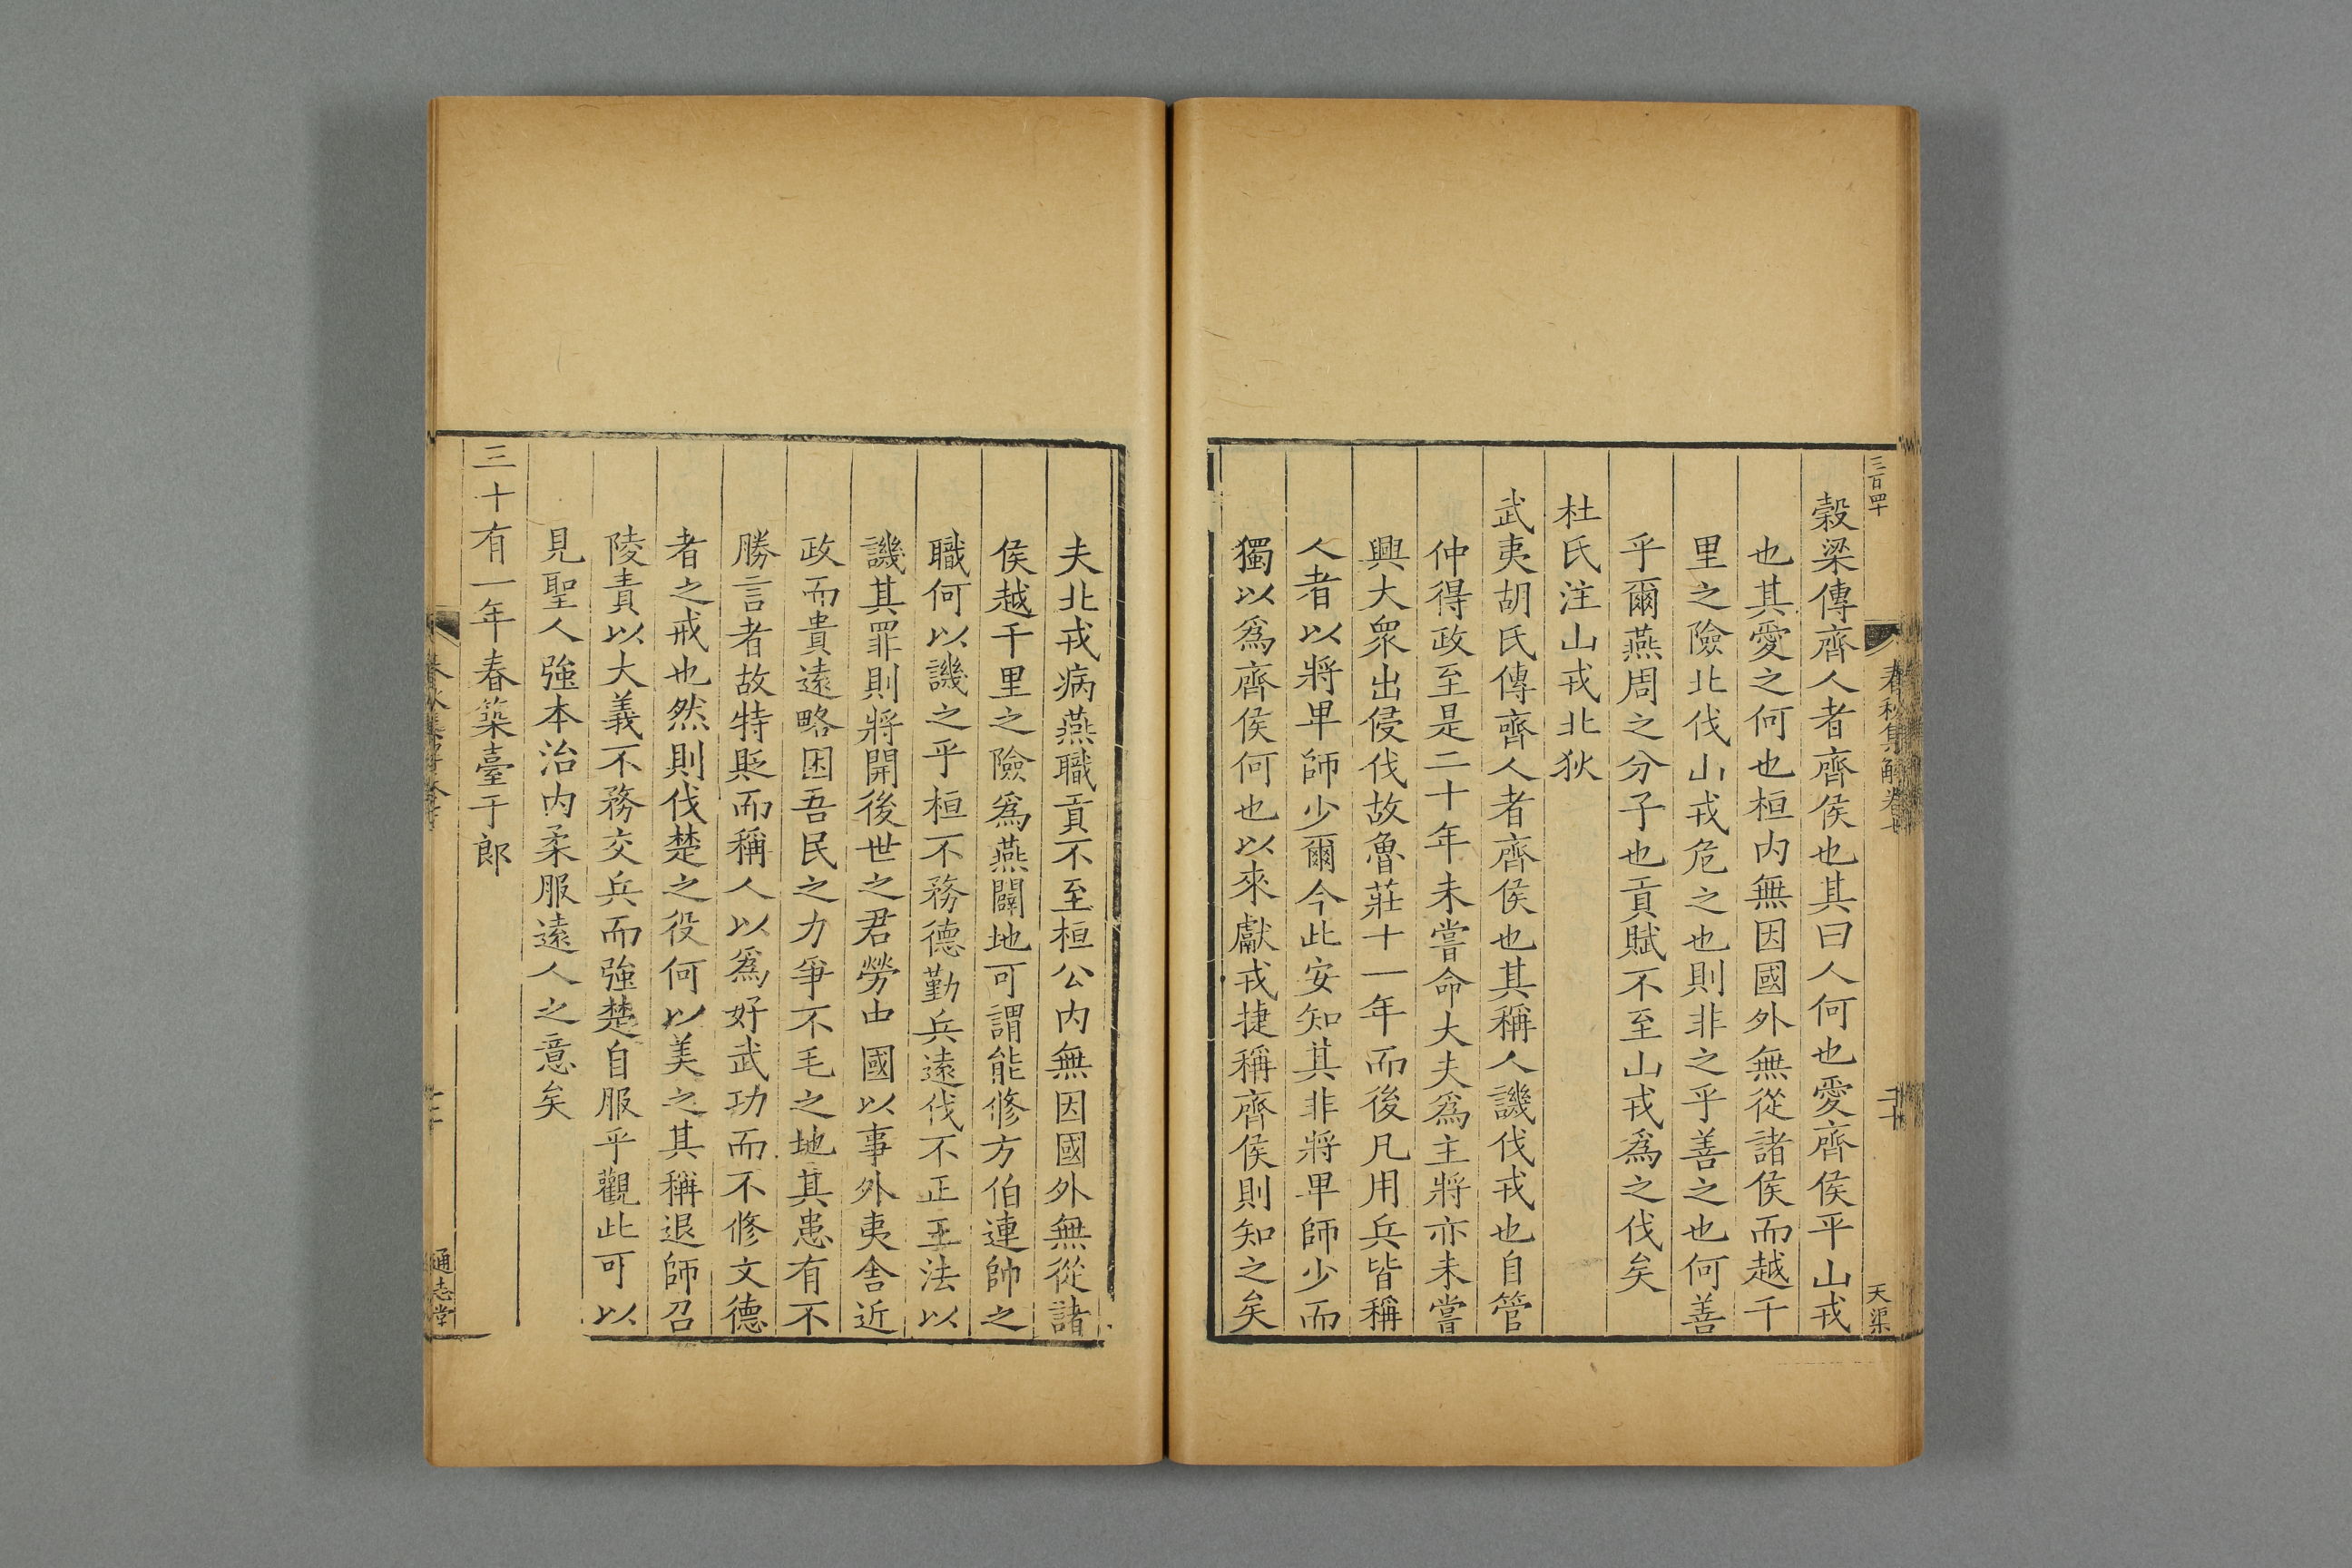 三百四十
春秋集解卷七
二十
天渠
穀梁傳齊人者齊侯也其曰人何也愛齊侯乎山戎
也其愛之何也桓内無因國外無從諸侯而越千
里之險北伐山戎危之也則非之乎善之也何善
乎爾燕周之分子也貢賦不至山戎爲之伐矣
杜氏注山戎北狄
武夷胡氏傳齊人者齊侯也其稱人譏伐戎也自管
仲得政至是二十年未嘗命大夫爲主將亦未嘗
興大衆出侵伐故魯莊十一年而後凡用兵皆稱
人者以將卑師少爾今此安知其非將卑師少而
獨以爲齊侯何也以來獻戎捷稱齊侯則知之矣
夫北戎病燕職貢不至桓公内無因國外無從諸
侯越千里之險爲燕闢地可謂能修方伯連帥之
職何以譏之乎桓不務德勤兵遠伐不正王法以
譏其罪則將開後世之君勞由國以事外夷舎近
政而貴遠略困吾民之力爭不毛之地其患有不
勝言者故特貶而稱人以爲好武功而不修文德
者之戒也然則伐楚之役何以美之其稱退師召
陵責以大義不務交兵而強楚自服乎觀此可以
見聖人強本治内柔服遠人之意矣
三十有一年春築臺于郎
通志堂